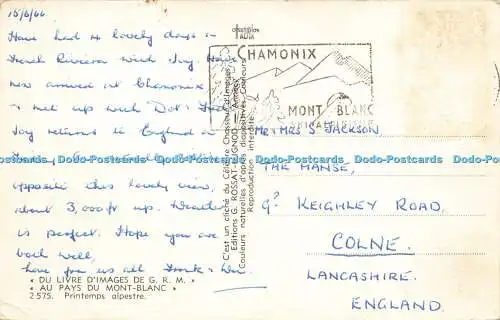 15/6/66
Have had 4 lovely days in
French Riviera with Joy. Have
now arrived at Chamonix
& met up with Dot &
Joy returns to England on
opposite this lovely view,
about 3,000ft up. Weather
is perfect. Hope you are
both well,
love from us all
« DU LIVRE D'IMAGES DE G. R. M. »
« AU PAYS DU MONT-BLANC »
2 575. Printemps alpestre.
champion
C'est un cliché du Célèbre Chasseur d'Images
Editions G. ROSSAT-MIGNOD
Couleurs naturelles d'après diapositives Couleurs
Reproduction interdite
CHAMONIX
MONT BLANC
Mr & Mrs S JACKSON,
THE MANSE,
9? KEIGHLEY ROAD,
COLNE.
LANCASHIRE.
ENGLAND.
Dodo-Postcards Dodo-Postcards Dodo-Postcards Dodo-Postcards Dodo-Postcards Dodo-Postcards